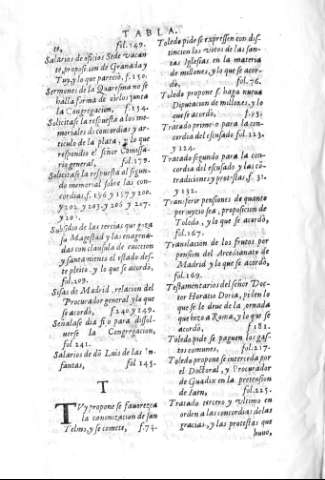 TABLA.
to, fol.149.
Salarios de oficios Sede vacan
te, proposicion de Granada y
Tuy, y lo que pareciò, f.150.
Sermones de la Quaresma no se
halla forma de oirlos junta
la Congregacion, f.154.
Solicitase la respuesta a los me-
moriales de concordias y ar-
ticulo de la plata, y lo que
respondio el señor Comissa-
rio general, fol.178.
Solicitase la respuesta al segun-
do memorial sobre las con-
cordias, f.196 y 197 y 200.
y 202. y 203. y 206 y 207.
y 201.
Subsidio de las tercias que goza
su Magestad y las enagena-
das con clausula de eviccion
y saneamiento el estado des-
te pleito, y lo que se acordò,
fol.209.
Sisas de Madrid, relacion del
Procurador general y lo que
se acordò, f 240 y 249.
Señalase dia fixo para dissol-
verse la Congregacion,
fol 241.
Salarios de dõ Luis de las In-
fantas, fol 243.
T
TVy propone se favorezca
la canonizacion de san
Telmo, y se comete, f.74.
Toledo pide se expressen con dis-
tincion los votos de las san-
tas Iglesias en la materia
de millones, y lo que se acor-
dò, fol.76.
Toledo propone se haga nueva
Diputacion de millones, y lo
que se acordò, f.93.
Tratado primero para la con-
cordia del escusado fol.123.
y 124.
Tratado segundo para la con-
cordia del escusado y las cõ-
tradiciones y protestas, f. 31.
y 132.
Transferir pensiones de quanto
perjuyzio sea, proposicion de
Toledo, y lo que se acordò,
fol.167.
Translacion de los frutos por
pension del Arcedianato de
Madrid y lo que se acordò,
fol.169.
Testamentarios del señor Doc-
tor Horacio Doria, piden lo
que se le deve de la jornada
que hizo a Roma, y lo que se
acordò, f 181.
Toledo pide se paguen los gas-
tos comunes, fol.217.
Toledo propone se interceda por
el Doctoral, y Procurador
de Guadix en la pretension
de Iaen, fol.225.
Tratado tercero y vltimo en
orden a las concordias de las
gracias, y las protestas que
huuo,